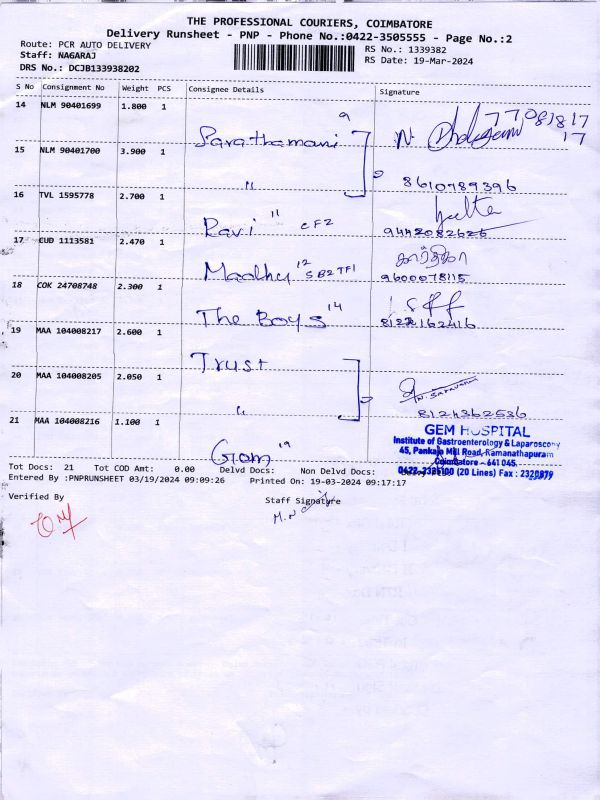 THE PROFESSIONAL COURIERS, COIMBATORE
Delivery Runsheet - PNP - Phone No.:0422-3505555 - Page No.:2
Route: PCR AUTO DELIVERY
RS No.: 1339382
Staff: NAGARAJ
RS Date: 19-Mar-2024
DRS No.: DCJB133938202
S No Consignment No Weight PCS Consignee Details Signature
14 NLM 90401699 1.800 1
9
Parathamani
77081817
17
15 NLM 90401700 3.900 1
"
8610989396
16 TVL 1595778 2.700 1
Ravi " CF2
9442082626
17 CUD 1113581 2.470 1
Madhu 12 SB2TF1
கார்த்திகா
9600078115
18 COK 24708748 2.300 1
The Boys 14
8122162416
19 MAA 104008217 2.600 1
Trust
20 MAA 104008205 2.050 1
"
N. Saravanan
8124362536
21 MAA 104008216 1.100 1
Gem 19
GEM HOSPITAL
Institute of Gastroenterology & Laparoscopy
45, Pankaja Mill Road, Ramanathapuram
Coimbatore - 641 045.
0422-2325100 (20 Lines) Fax : 2320879
Tot Docs: 21 Tot COD Amt: 0.00 Delvd Docs: Non Delvd Docs:
Entered By :PNPRUNSHEET 03/19/2024 09:09:26 Printed On: 19-03-2024 09:17:17
Verified By
Staff Signature